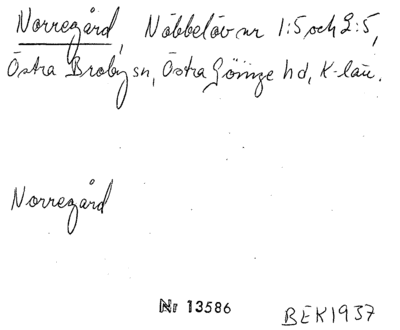 Norregård, Näbbelöv nr 1:5 och 2:5,
Östra Broby sn, Östra Göinge hd, K-län.
Norregård
Nr 13586
BEK1937